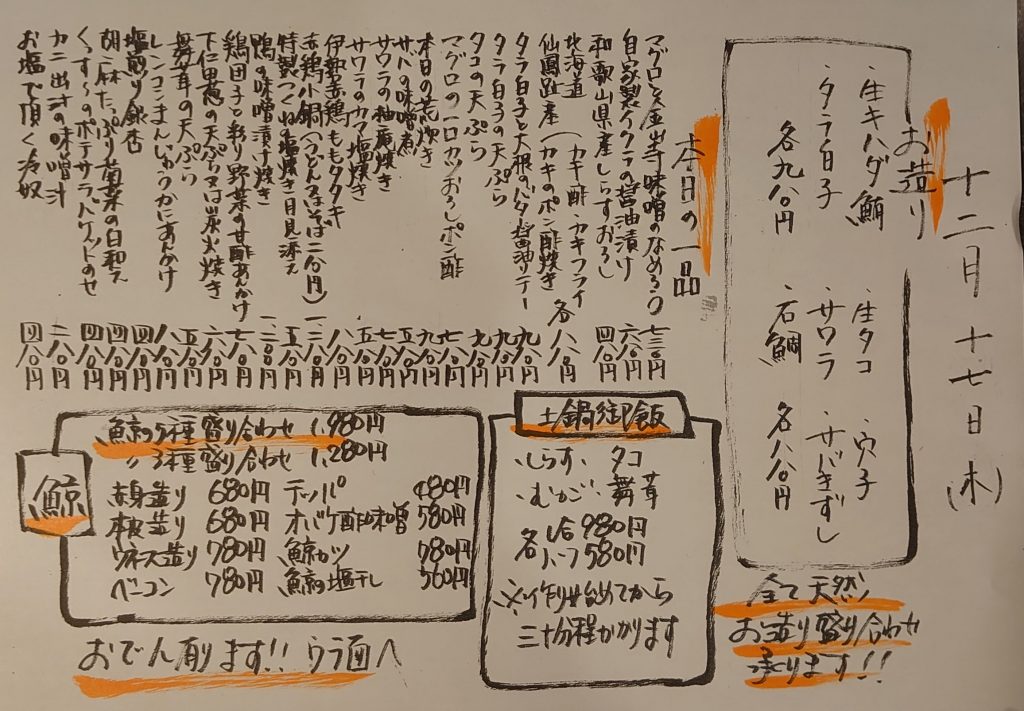 十二月十七日(木)
お造り
・生キハダ鮪
・タラ白子
各九八〇円
・生タコ
・サワラ
・石鯛
・穴子
・サバきずし
各八八〇円
全て天然
お造り盛り合わせ
承ります!!
本日の一品
マグロと金山寺味噌のなめろう 七三〇円
自家製イクラの醤油漬け 六八〇円
和歌山県産しらすおろし 四八〇円
北海道
仙鳳趾産
(カキ酢・カキフライ
(カキのポン酢焼き 各八八〇円
タラ白子と大根のバター醤油ソテー 九八〇円
タラ白子の天ぷら 九八〇円
タコの天ぷら 九八〇円
マグロの一口カツおろしポン酢 七八〇円
本日の荒炊き 九八〇円
サバの味噌煮
サワラの柚庵焼き
サワラのカマ塩焼き 五八〇円
伊都赤鶏ももタタキ 八八〇円
赤鶏小鍋
特製つくね塩焼き月見添え 五八〇円
鴨の味噌漬け焼き
鶏団子と彩り野菜の甘酢あんかけ 七八〇円
下仁田葱の天ぷら又は炭火焼き 六八〇円
舞茸の天ぷら 五八〇円
レンコンまんじゅうかにあんかけ 八八〇円
塩煎り銀杏 四八〇円
胡麻たっぷり菊菜の白和え 四八〇円
くっすーのポテサラバケットのせ 四八〇円
カニ出汁の味噌汁 二八〇円
お塩で頂く冷奴 四八〇円
土鍋御飯
・しらす ・タコ
・むかご ・舞茸
各 1合 980円
ハーフ 580円
※作り始めてから
三十分程かかります
鯨
鯨の5種盛り合わせ 1,980円
〃 3種盛り合わせ 1,280円
赤身造り 680円
本皮造り 680円
ウネス造り 780円
ベーコン 780円
テッパ 480円
オバケ酢味噌 580円
鯨カツ 780円
鯨の塩干し 560円
おでん有ります!! ウラ面へ